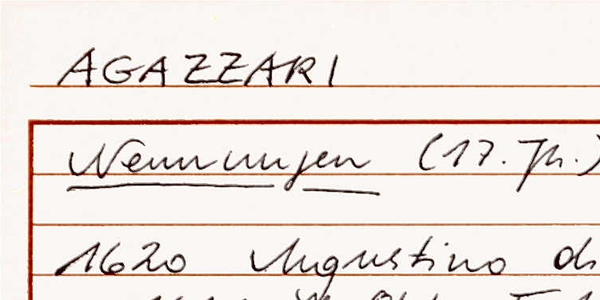 AGAZZARI
Nennungen (17. Jh.)
1620 Augustino